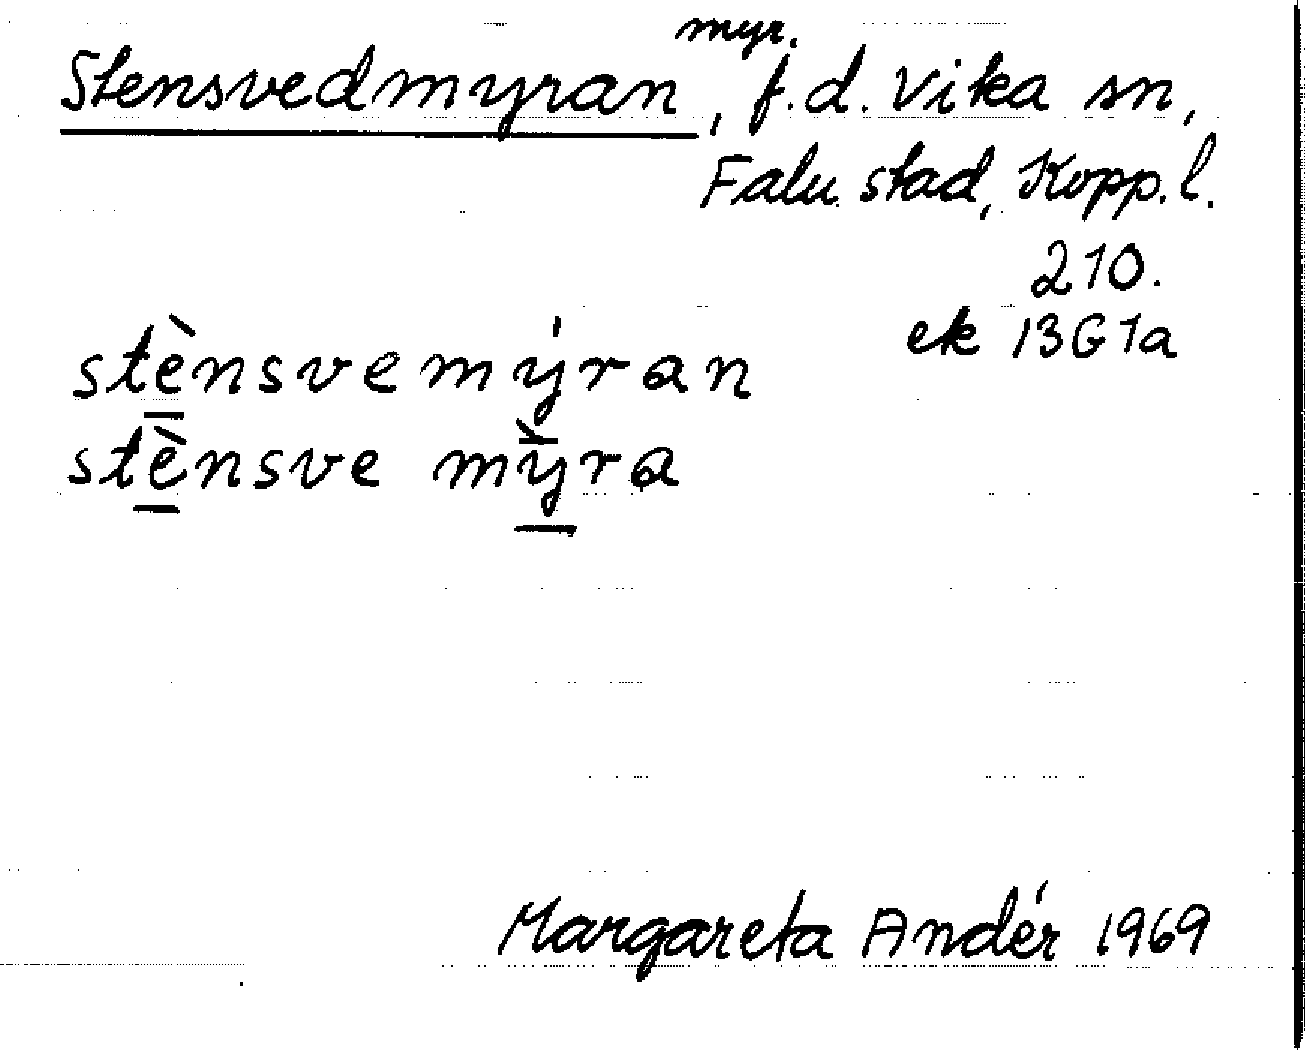 Stensvedmyran, myr. f.d. Vika sn,
Falu stad, Kopp. l.
210.
ek 13G1a
stènsvemýran
stènsve mỳra
Margareta Andér 1969